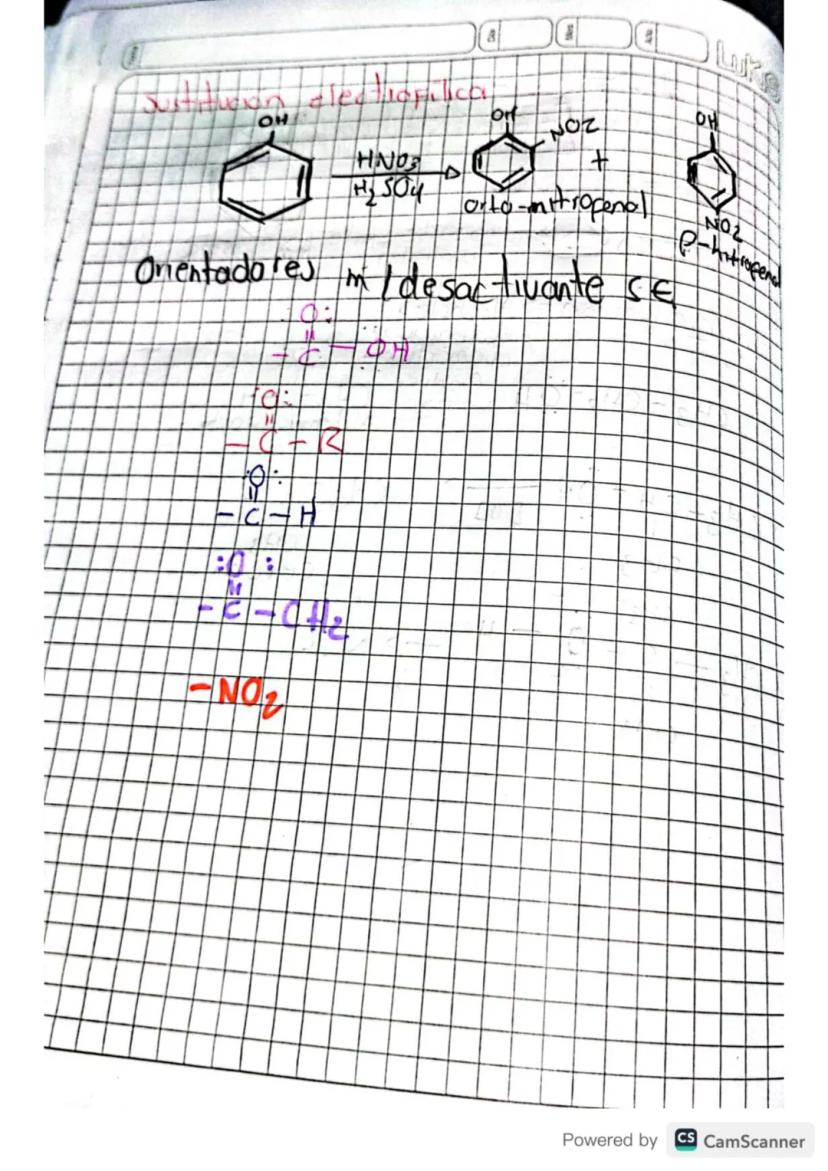 Sustitución electrofílica
OH
HNO3
H2SO4
OH
NO2
+
orto-nitrofenol
OH
NO2
p-nitrofenol
Orientadores m/desactivante SE
:O:
- C - OH
:O:
- C - R
:O:
- C - H
:O:
- C - CH2
-NO2
LUKE
Powered by CS CamScanner